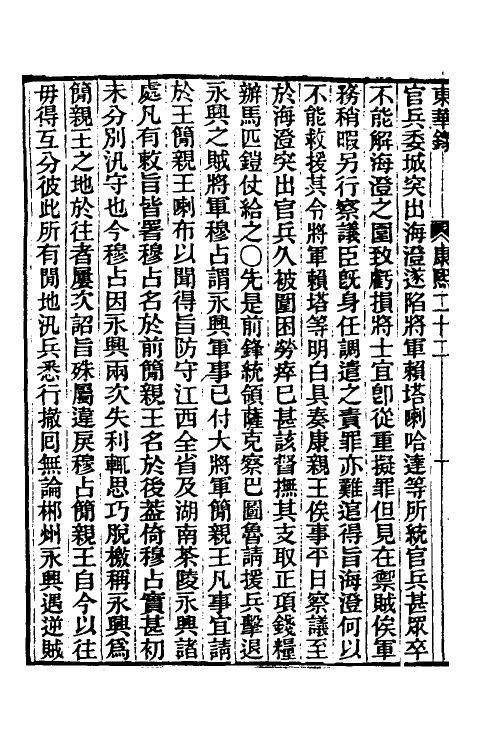 東華錄 康熙二十二 十
官兵委城突出海澄遂陷將軍賴塔喇哈達等所統官兵甚眾卒
不能解海澄之圍致虧損將士宜卽從重擬罪但見在禦賊俟軍
務稍暇另行察議臣旣身任調遣之責罪亦難逭得旨海澄何以
不能救援其令將軍賴塔等明白具奏康親王俟事平日察議至
於海澄突出官兵久被圍困勞瘁已甚該督撫其支取正項錢糧
辦馬匹鎧仗給之〇先是前鋒統領薩克察巴圖魯請援兵擊退
永興之賊將軍穆占謂永興軍事已付大將軍簡親王凡事宜請
於王簡親王喇布以聞得旨防守江西全省及湖南茶陵永興諸
處凡有敕旨皆署穆占名於前簡親王名於後蓋倚穆占實甚初
未分別汛守也今穆占因永興兩次失利輒思巧脫檄稱永興爲
簡親王之地於往者屢次詔旨殊屬違戾穆占簡親王自今以往
毋得互分彼此所有閒地汛兵悉行撤囘無論郴州永興遇逆賊